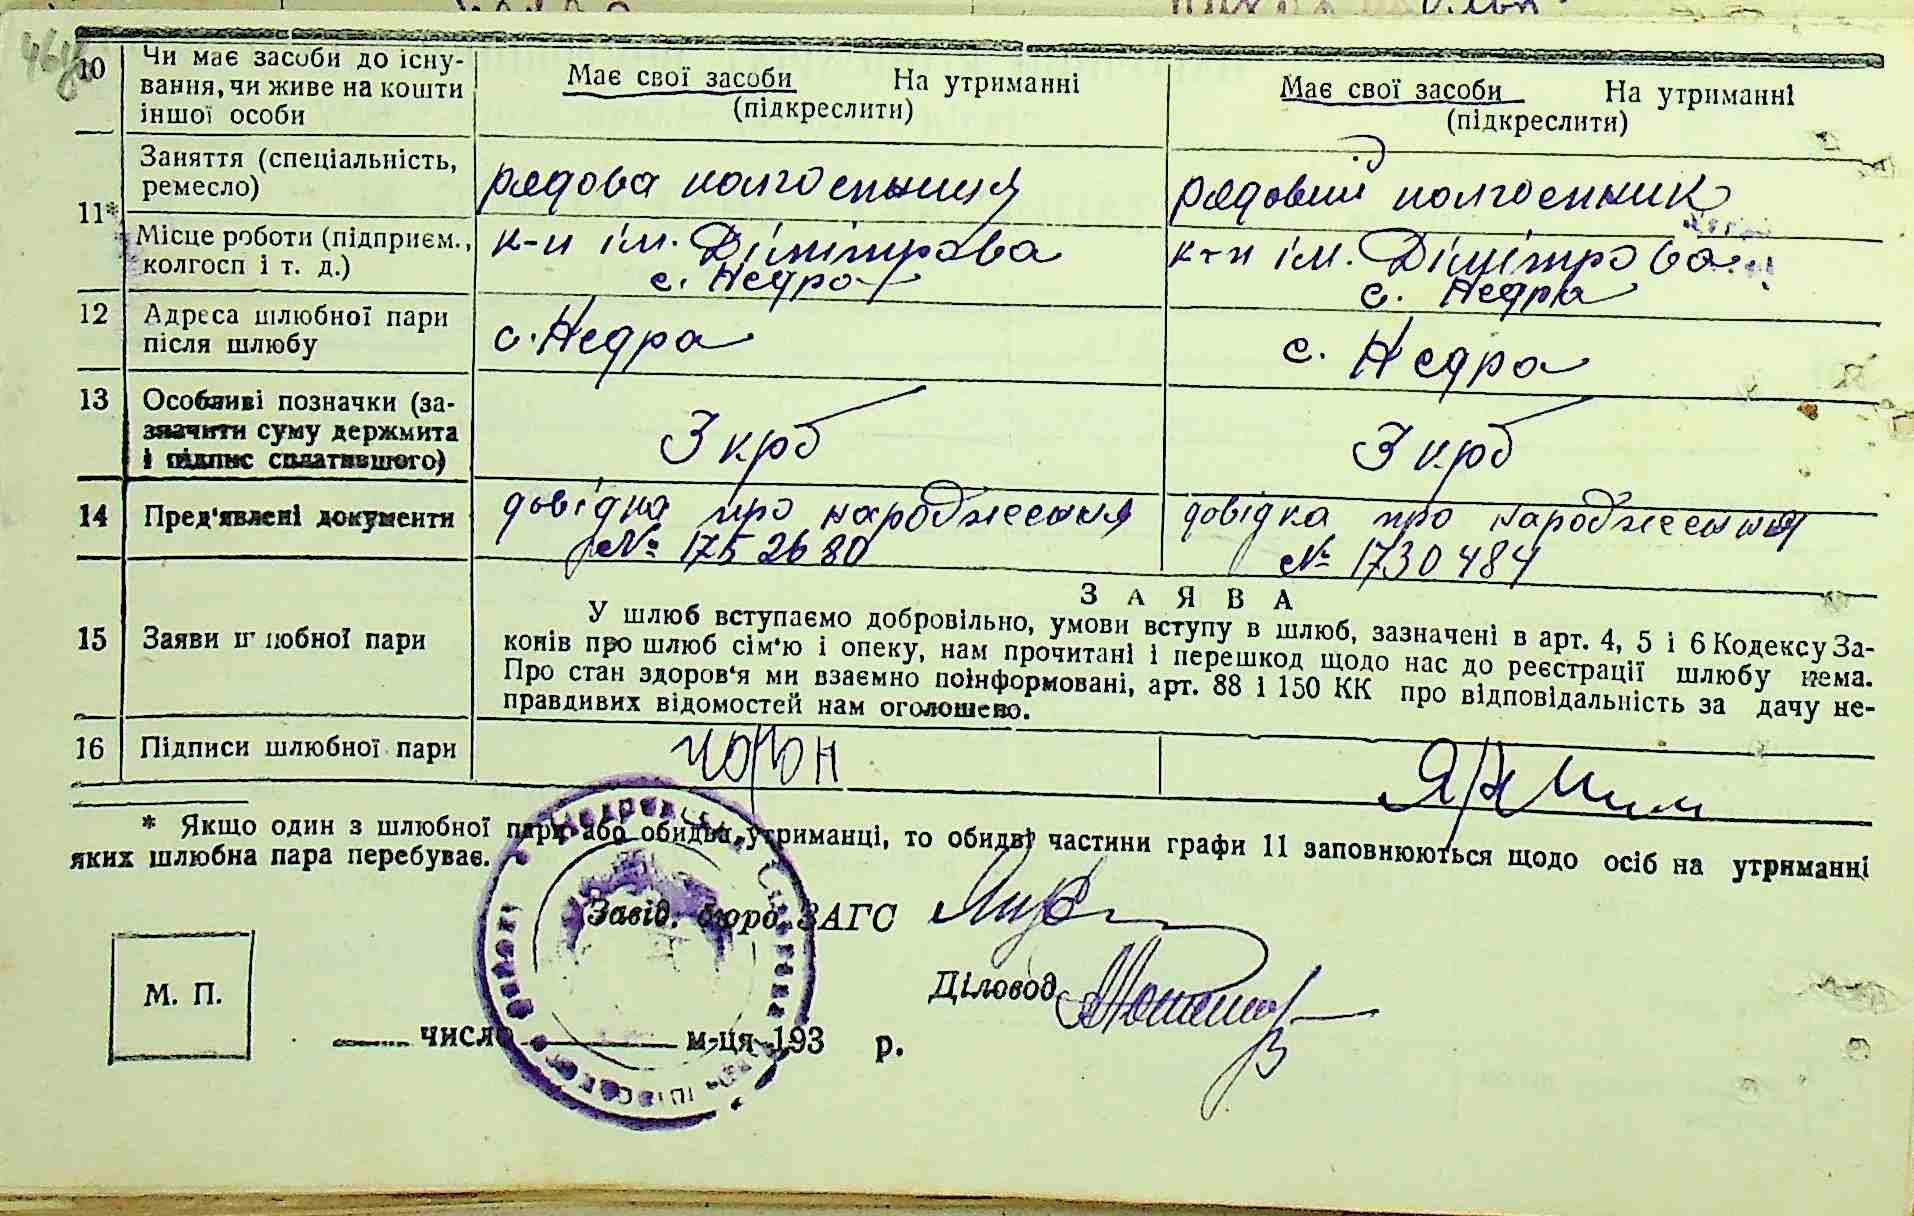 10 Чи має засоби до існу-
вання, чи живе на кошти
іншої особи
Має свої засоби На утриманні
(підкреслити)
Має свої засоби На утриманні
(підкреслити)
11* Заняття (спеціальність,
ремесло)
рядова колгоспниця
рядовий колгоспник
Місце роботи (підприєм.,
колгосп і т. д.)
к-п ім. Дімітрова
с. Недра
к-п ім. Дімітрова
с. Недра
12 Адреса шлюбної пари
після шлюбу
с. Недра
с. Недра
13 Особливі позначки (за-
значити суму держмита
і підпис сплатившого)
3 крб
3 крб
14 Пред'явлені документи
довідка про народження
№ 1752680
довідка про народження
№ 1730484
15 Заяви шлюбної пари
ЗАЯВА
У шлюб вступаємо добровільно, умови вступу в шлюб, зазначені в арт. 4, 5 і 6 Кодексу За-
конів про шлюб сім'ю і опеку, нам прочитані і перешкод щодо нас до реєстрації шлюбу нема.
Про стан здоров'я ми взаємно поінформовані, арт. 88 і 150 КК про відповідальність за дачу не-
правдивих відомостей нам оголошено.
16 Підписи шлюбної пари
* Якщо один з шлюбної пари або обидва утриманці, то обидві частини графи 11 заповнюються щодо осіб на утриманні
яких шлюбна пара перебуває.
Завід. бюро ЗАГС
Діловод
М. П.
число м-ця 193 р.